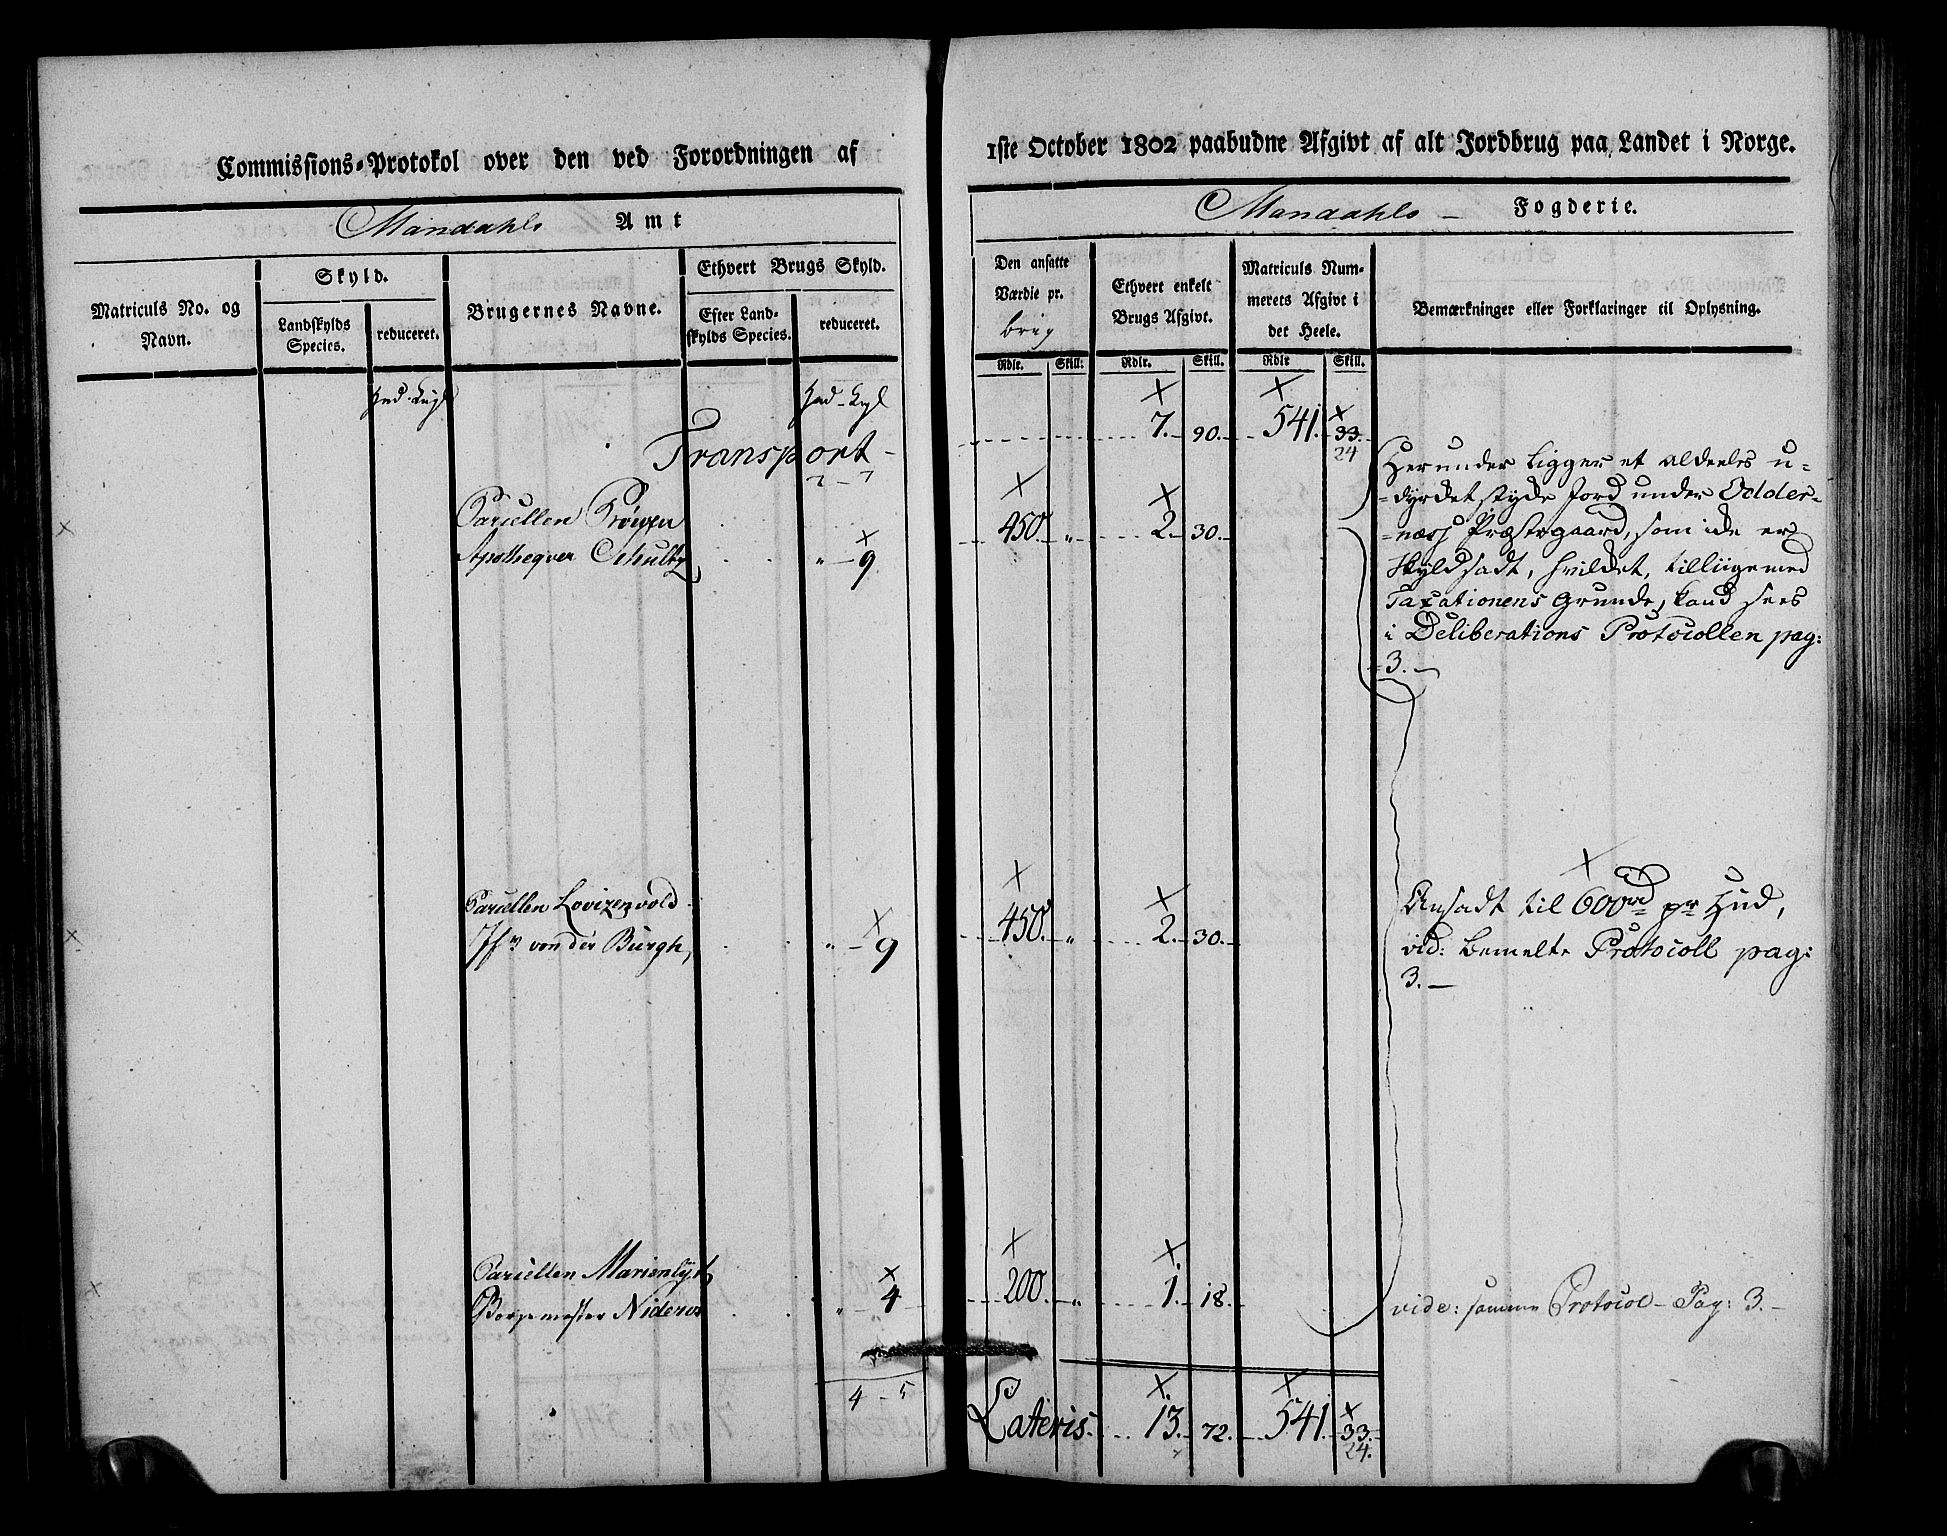 Commissions-Protokol over den ved Forordningen af
1ste October 1802 paabudne Afgivt af alt Jordbrug paa Landet i Norge.
Mandahls Amt
Mandahls – Fogderie.
Matriculs No. og Navn.
Skyld.
Landskylds Species.
reduceret.
Brugernes Navne.
Ethvert Brugs Skyld.
Efter Landskylds Species.
reduceret.
Den ansatte Værdie pr.
Ethvert enkelt Brugs Afgivt.
Matriculs Nummerets Afgivt i det Heele.
Bemærkninger eller Forklaringer til Oplysning.
Rdlr. Skill: Rdlr. Skill. Rdlr Skill.
Transport – 7. 90. 541. 33.
24
Parcellen
Apotheqver Schultz, „ – 9 450. „ 2. 30.
Herunder ligger et aldeeles u-
-dyrdet stycke Jord under Odder-
-næss Præstegaard, som icke er
Skyldsadt, hvilcket, tilliigemed
Taxationens Grunde, kand sees
i Deliberations Protocollen pag:
3. –
Parcellen Lovizenvold
von der Burgh, „ – 9 450. „ 2. 30.
Ansadt til 600rd pr Hud,
vid: bemelte Protocoll pag:
3. –
Parcellen Marienlyst
Borgemester Niderox „ 4 200. „ 1. 18.
vide: samme Protocol – Pag: 3. –
4 – 5
Lateris. 13. 72. 541. 33.
24.